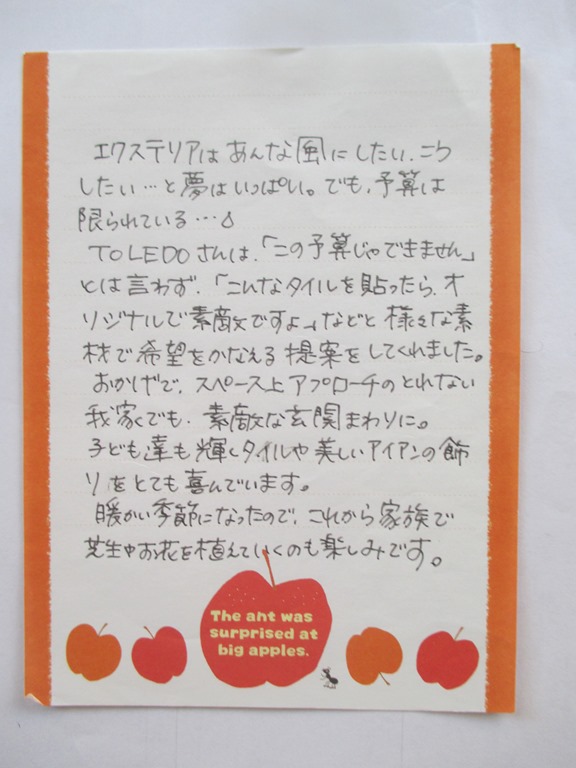 エクステリアは あんな風にしたい、こう
したい…と夢はいっぱい。でも、予算は
限られている…
TOLEDOさんは、「この予算じゃできません」
とは言わず、「こんなタイルを貼ったら、オ
リジナルで素敵ですよ」などと様々な素
材で希望をかなえる提案をしてくれました。
おかげで、スペース上アプローチのとれない
我家でも、素敵な玄関まわりに。
子ども達も輝くタイルや美しいアイアンの飾
りをとても喜んでいます。
暖かい季節になったので、これから家族で
芝生やお花を植えていくのも楽しみです。
The ant was
surprised at
big apples.